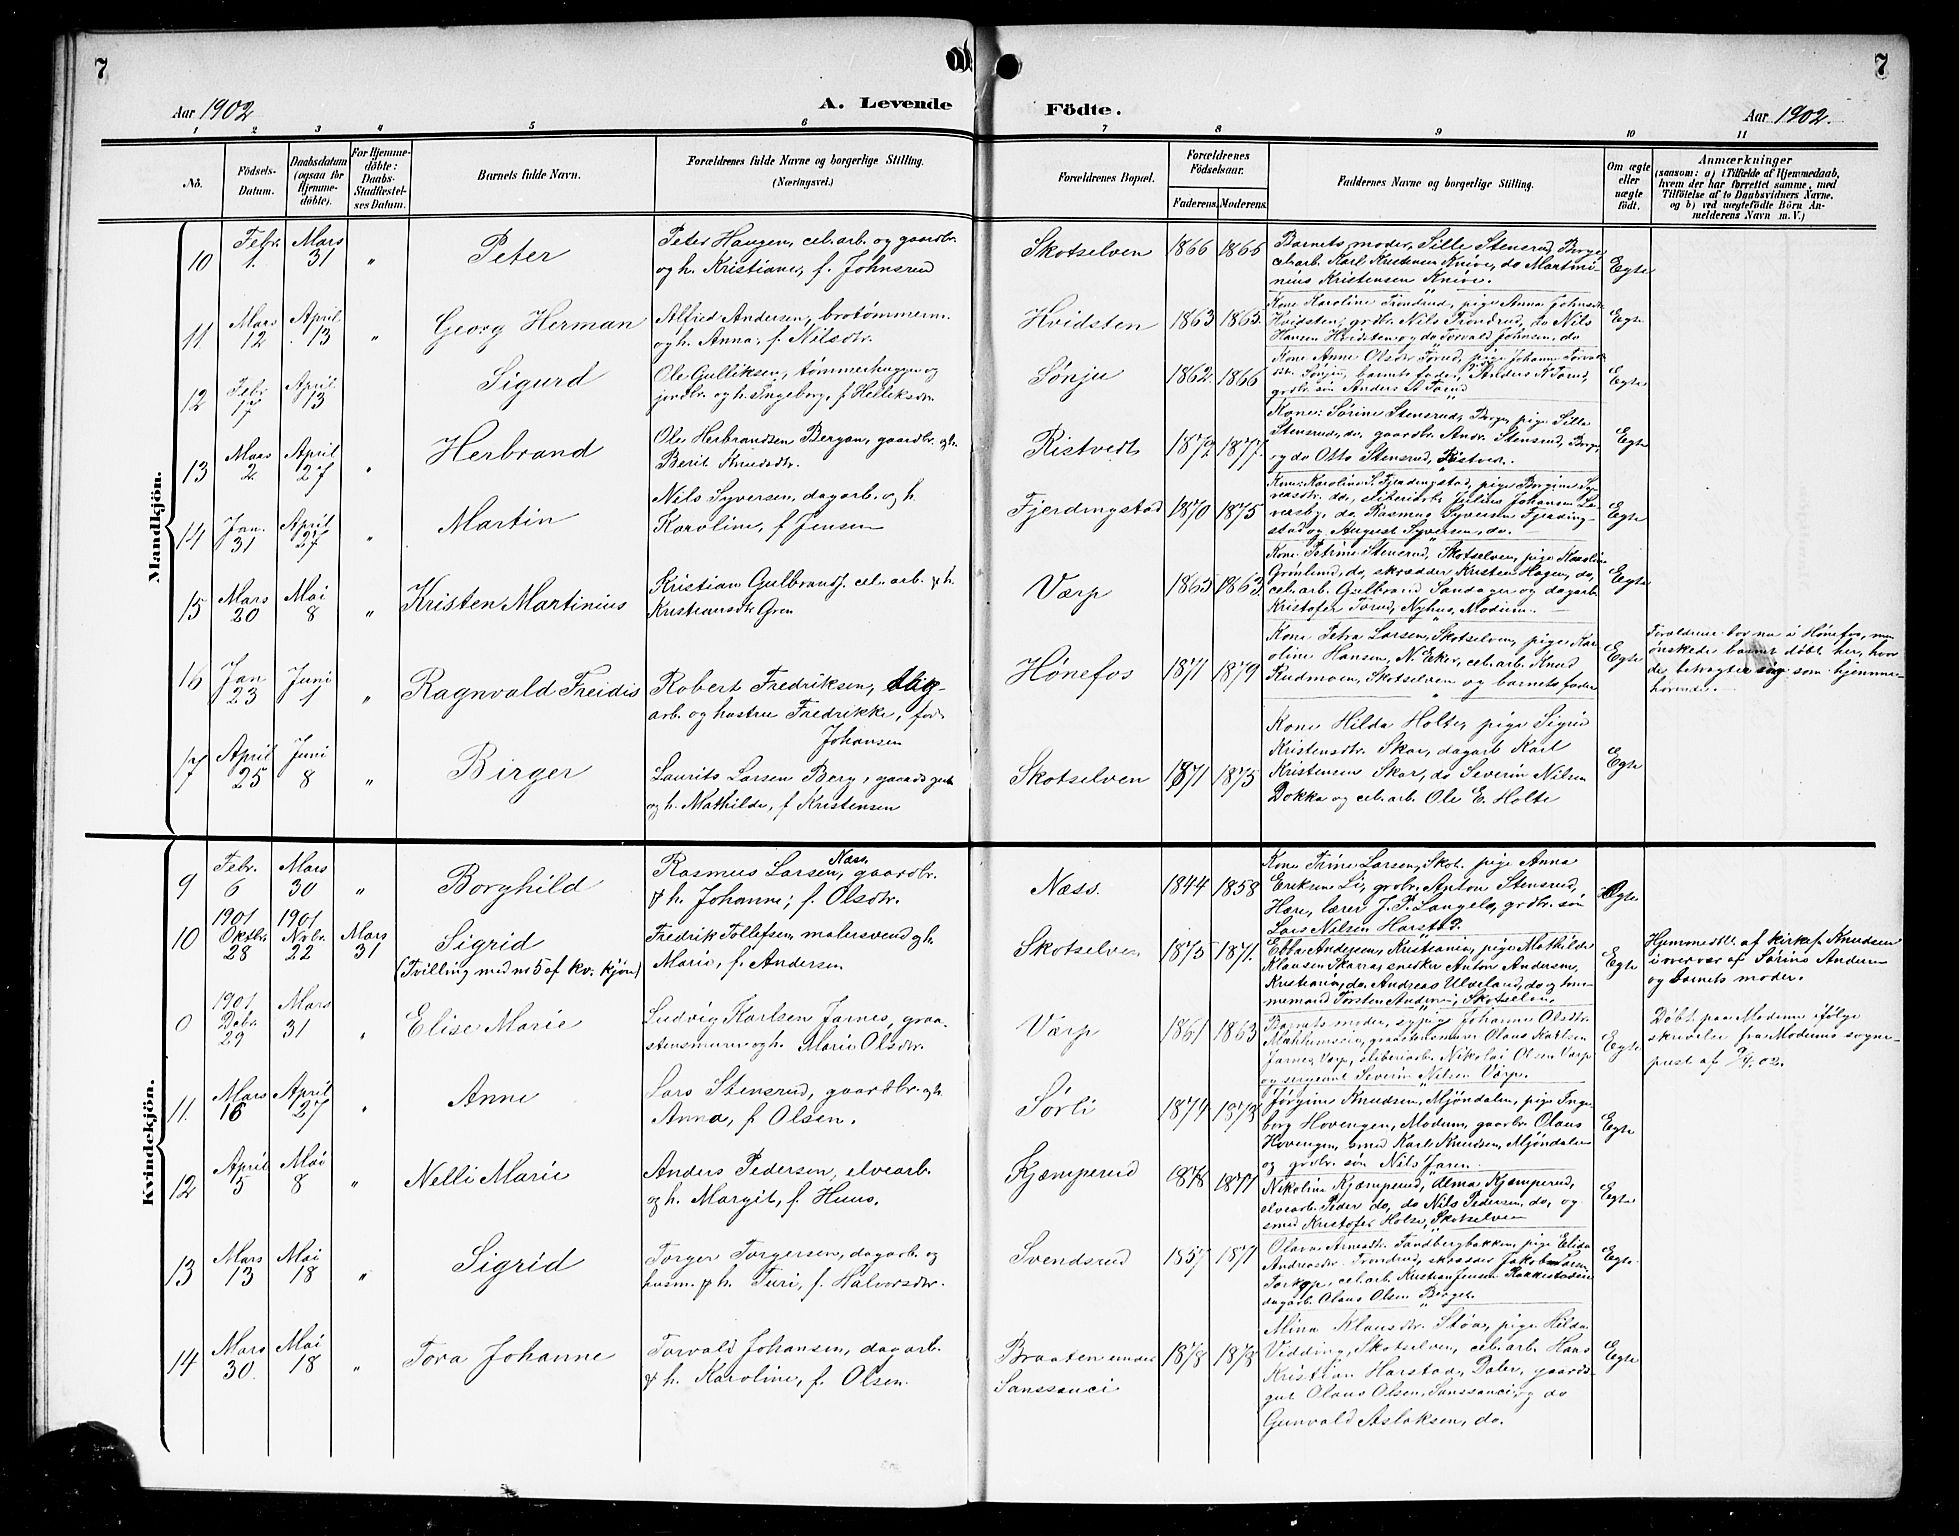 7
7
Aar 1902
A. Levende
Födte.
Aar 1902.
1 2 3 4 5 6 7 8 9 10 11
Nô.
Födsels-
Datum.
Daabsdatum
(ogsaa for
Hjemme-
döbte).
For Hjemme-
döbte:
Daabs-
Stadfæstel-
ses Datum.
Barnets fulde Navn.
Forældrenes fulde Navne og borgerlige Stilling.
(Næringsvei.)
Forældrenes Bopæl.
Forældrenes
Födselsaar.
Faderens. Moderens.
Faddernes Navne og borgerlige Stilling.
Om ægte
eller
uægte
födt.
Anmærkninger
(saasom: a) i Tilfælde af Hjemmedaab,
hvem der har forrettet samme, med
Tilföielse af to Daabsvidners Navne,
og b) ved uegtefödte Börn An-
melderens Navn m. V.)
Mandkjön.
10
Febr.
1.
Mars
31
"
Peter
Peter Haugen, cel.arb. og gaardbr.
og h. Kristiane, f. Johnsrud
Skotselven
1866 1865
Barnets moder, Sille Stensrud, Berge,
cel.arb. Karl Knudsen Knive, do Martini-
nius Kristensen Knive.
Egte
11
Mars
12
April
13
"
Georg Herman
Alfred Andersen, brotømmerm.
og h. Anna, f. Nilsdtr.
Hvidsten
1863 1865.
Kone Karoline Trondrud, pige Anna Johnsdtr.
Hvidsten, grdbr. Nils Trondrud, do Nils
Hansen Hvidsten og do Torvald Johnsen, do
Egte
12
Febr.
17
April
13
Sigurd
Ole Gulliksen, tömmerhugger og
jordbr. og h. Ingeborg, f Helliksdtr.
Sönju
1862. 1866
Kone Anne Olsdtr Torud, pige Johanne Torvalds-
dtr. Sönju, barnets fader, Anders N Torud,
grdbr. sön Anders A Torud
Egte
13
Mars
2.
April
27
"
Herbrand
Ole Herbrandsen Bergan, gaardbr. og h.
Berit Knudsdtr.
Ristvedt
1872 1877.
Kone: Sörine Stensrud, Berge, pige Sille
Stensrud, do, gaardbr. Andr. Stensrud, Berge,
og do Otto Stensrud, Ristved.
Egte
14
Jan.
31
April
27
"
Martin
Nils Syversen, dagarb. og h.
Karoline, f Jensen
Fjerdingstad
1870 1875
Kone: Karoline S. Fjerdingstad, pige Bergine Sy-
versdtr. do, sliberiarb. Julius Johansen Le-
vesby, do Rasmus Syversen Fjerding-
stad og August Syversen, do.
Egte
15
Mars
20
Mai
8
"
Kristen Martinius
Kristian Gulbrands. cel. arb. & h.
Kristiansdtr Gren
Værp
1865 1863.
Kone Petrine Stensrud, Skotselven, pige Karoline
Grönlund, do, skrædder Kristen Hagen, do,
cel.arb. Gulbrand Sandager og dagarb.
Kristofer Torud, Nyhus, Modum.
Egte
16
Jan
23
Juni
1
"
Ragnvald Freidis
Robert Fredriksen, slip-
arb. og hustru Fredrikke, föd.
Johansen
Hönefos
1871 1879
Kone Petra Larsen, Skotselven, pige Kar-
oline Hansen, N. Eker, cel.arb. Knud
Rudmoen, Skotselven og barnets fader
Egte
Forældrene bor nu i Hönefos, men
önskede barnet döbt her, hvor
de betragter sig som hjemme-
hörende.
17
April
25
Juni
8
"
Birger
Laurits Larsen Berg, gaardsgut
og h. Mathilde, f Kristensen
Skotselven
1871 1875
Kone Hilda Holte, pige Sigrid
Kristensdtr. Skar, dagarb Karl
Kristensen Skar, do Severin Nilsen
Dokka og cel.arb. Ole E. Holte
Egte
Kvindekjön.
9
Febr.
6
Mars
30
"
Borghild
Næss
Rasmus Larsen, gaardbr.
& h. Johanne, f. Olsdtr.
Næss.
1844 1858
Kone Trine Larsen, Skot. pige Anna
Eriksen Li, grdbr. Anton Stensrud,
Hære, lærer J. P. Langelo, grdbr. sön
Lars Nilsen Harstad.
Egte
10
1901
Oktbr.
28
1901
Novbr.
22
Mars
31
Sigrid
(Tvilling med no 5 af kv. kjön)
Fredrik Tollefsen, malersvend og h.
Marie, f. Andersen
Skotselven
1875 1871.
Ebba Andersen, Kristiania, pige Mathilde
Klausen Skarra, snedker Anton Andersen,
Kristiania, do Andreas Ulveland, do og töm-
mermand Torsten Andersen, Skotselven.
Egte
Hjemmedbt. af kirkes. Knudsen
i overvær af Sörine Andersen
og barnets moder.
0
1901
Debr.
29
Mars
31
"
Elise Marie
Ludvig Karlsen Jarnes, graa-
stensmurer og h. Marie Olsdtr.
Værp
1861 1863
Barnets moder, sypige Johanne Olsdtr.
graastensmurer Olaus Karlsen
Jarnes, Værp, sliberiarb. Nikolai Olsen Værp
og sergeant Severin Nilsen Værp.
Egte
Döbt paa Modum ifölge
skrivelse fra Modums sogne-
prest af 7/4 02.
11.
Mars
16
April
27
"
Anne
Lars Stensrud, gaardbr. og h.
Anna, f. Olsen.
Sörli
1874 1873
Jörgine Knudsen, Mjöndalen, pige Inge-
borg Hovengen, Modum, gaardbr. Olaus
Hovengen, smed Karl Knudsen, Mjöndalen
og grdbr. sön Nils Jaren.
Egte
12
April
5
Mai
8
"
Nelli Marie
Anders Pedersen, elvearb.
og h. Margit, f. Huus.
Kjæmperud
1878 1877
Nikoline Kjæmperud, Alma Kjæmperud,
elvearb. Peder do, do Nils Pedersen, do, og
smed Kristofer Holse, Skotselven
Egte
13
Mars
13
Mai
18
"
Sigrid
Torger Torgersen, dagarb. og
husm. & h. Turi, f. Halvorsdtr.
Svendsrud
1857 1871
Olava Arnesdtr. Tandbergbakken, pige Elida
Andreasdtr. Trondrud, skrædder Jakob Moen,
Torkop, cel.arb. Kristian Jensen Kokkestadeie
dagarb. Olaus Olsen Berget.
Egte.
14
Mars
30.
Mai
18
"
Tora Johanne
Torvald Johansen, dagarb.
& h. Karoline, f. Olsen.
Braaten under
Sanssouci
1878 1878
Mina Klausdtr. Stöa, pige Hilda
Vidding, Skotselven, cel.arb. Hans
Kristian Harstad, Daler, gaards-
gut Olaus Olsen, Sanssouci, og do
Gunvald Aslaksen, do.
Egte